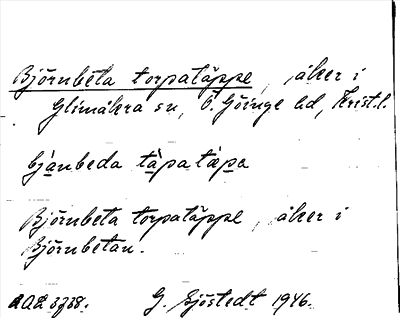 Björnbeta torpatäppe, åker i
Glimåkra sn, Ö. Göinge hd, Krist. l.
bjànbeda tàpatàpa
Björnbeta torpatäppe, åker i
Björnbetan.
G. Sjöstedt 1946.